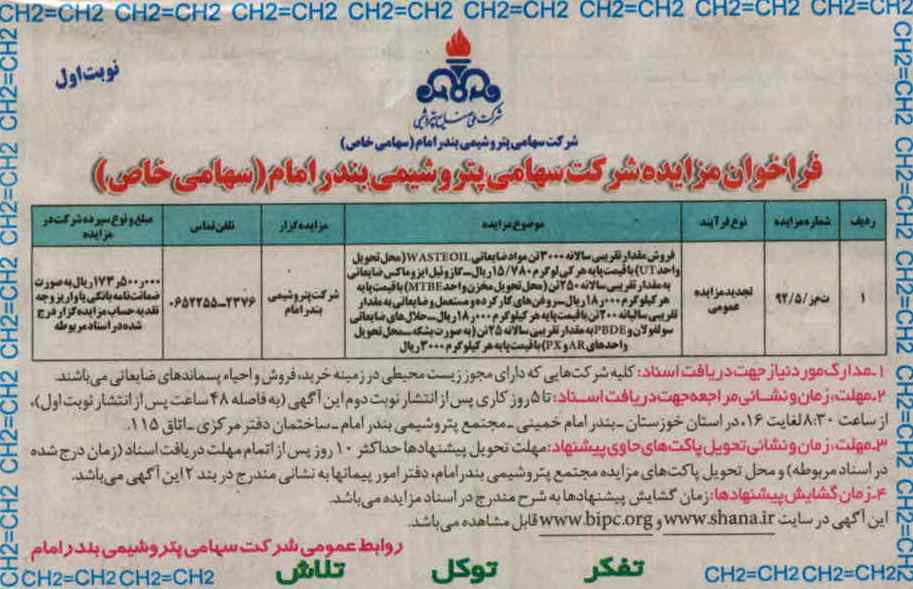 CH2=CH2 CH2=CH2 CH2=CH2 CH2=CH2 CH2=CH2 CH2=CH2 CH2=CH2 CH2=CH2
نوبت اول
شرکت ملی صنایع پتروشیمی
شرکت سهامی پتروشیمی بندر امام (سهامی خاص)
فراخوان مزایده شرکت سهامی پتروشیمی بندر امام (سهامی خاص)
ردیف
شماره مزایده
نوع فرآیند
موضوع مزایده
مزایده گزار
تلفن تماس
مبلغ و نوع سپرده شرکت در
مزایده
۱
ت‌مز/۹۲/۵
تجدید مزایده
عمومی
فروش مقدار تقریبی سالانه ۳۰۰۰ تن مواد ضایعاتی WASTEOIL (محل تحویل
واحد UT) با قیمت پایه هر کیلوگرم ۱۵/۷۸۰ ریال ـ گازوئیل ایزوماکس ضایعاتی
به مقدار تقریبی سالانه ۲۵۰ تن (محل تحویل مخزن واحد MTBE) با قیمت پایه
هر کیلوگرم ۱۸٫۰۰۰ ریال ـ روغن‌های کارکرده و مستعمل و ضایعاتی به مقدار
تقریبی سالیانه ۲۰۰ تن با قیمت پایه هر کیلوگرم ۱۸٫۰۰۰ ریال ـ حلال‌های ضایعاتی
سولفولان و PBDE به مقدار تقریبی سالانه ۲۵ تن (به صورت بشکه ـ محل تحویل
واحدهای AR و PX) با قیمت پایه هر کیلوگرم ۳۰۰۰ ریال
شرکت پتروشیمی
بندر امام
۰۶۵۲۲۵۵ـ۲۳۷۶
۱۷۳٫۵۰۰٫۰۰۰ ریال به صورت
ضمانت نامه بانکی یا واریز وجه
نقد به حساب مزایده گزار درج
شده در اسناد مربوطه
۱ـ مدارک مورد نیاز جهت دریافت اسناد: کلیه شرکت‌هایی که دارای مجوز زیست محیطی در زمینه خرید، فروش و احیاء پسماندهای ضایعاتی می‌باشند.
۲ـ مهلت، زمان و نشانی مراجعه جهت دریافت اسناد: تا ۵ روز کاری پس از انتشار نوبت دوم این آگهی (به فاصله ۴۸ ساعت پس از انتشار نوبت اول)،
از ساعت ۸:۳۰ لغایت ۱۶، در استان خوزستان ـ بندر امام خمینی ـ مجتمع پتروشیمی بندر امام ـ ساختمان دفتر مرکزی ـ اتاق ۱۱۵.
۳ـ مهلت، زمان و نشانی تحویل پاکت‌های حاوی پیشنهاد: مهلت تحویل پیشنهادها حداکثر ۱۰ روز پس از اتمام مهلت دریافت اسناد (زمان درج شده
در اسناد مربوطه) و محل تحویل پاکت‌های مزایده مجتمع پتروشیمی بندر امام، دفتر امور پیمانها به نشانی مندرج در بند ۲ این آگهی می‌باشد.
۴ـ زمان گشایش پیشنهادها: زمان گشایش پیشنهادها به شرح مندرج در اسناد مزایده می‌باشد.
این آگهی در سایت www.shana.ir و www.bipc.org قابل مشاهده می‌باشد.
روابط عمومی شرکت سهامی پتروشیمی بندر امام
تفکر توکل تلاش
CH2=CH2 CH2=CH2
CH2=CH2 CH2=CH2